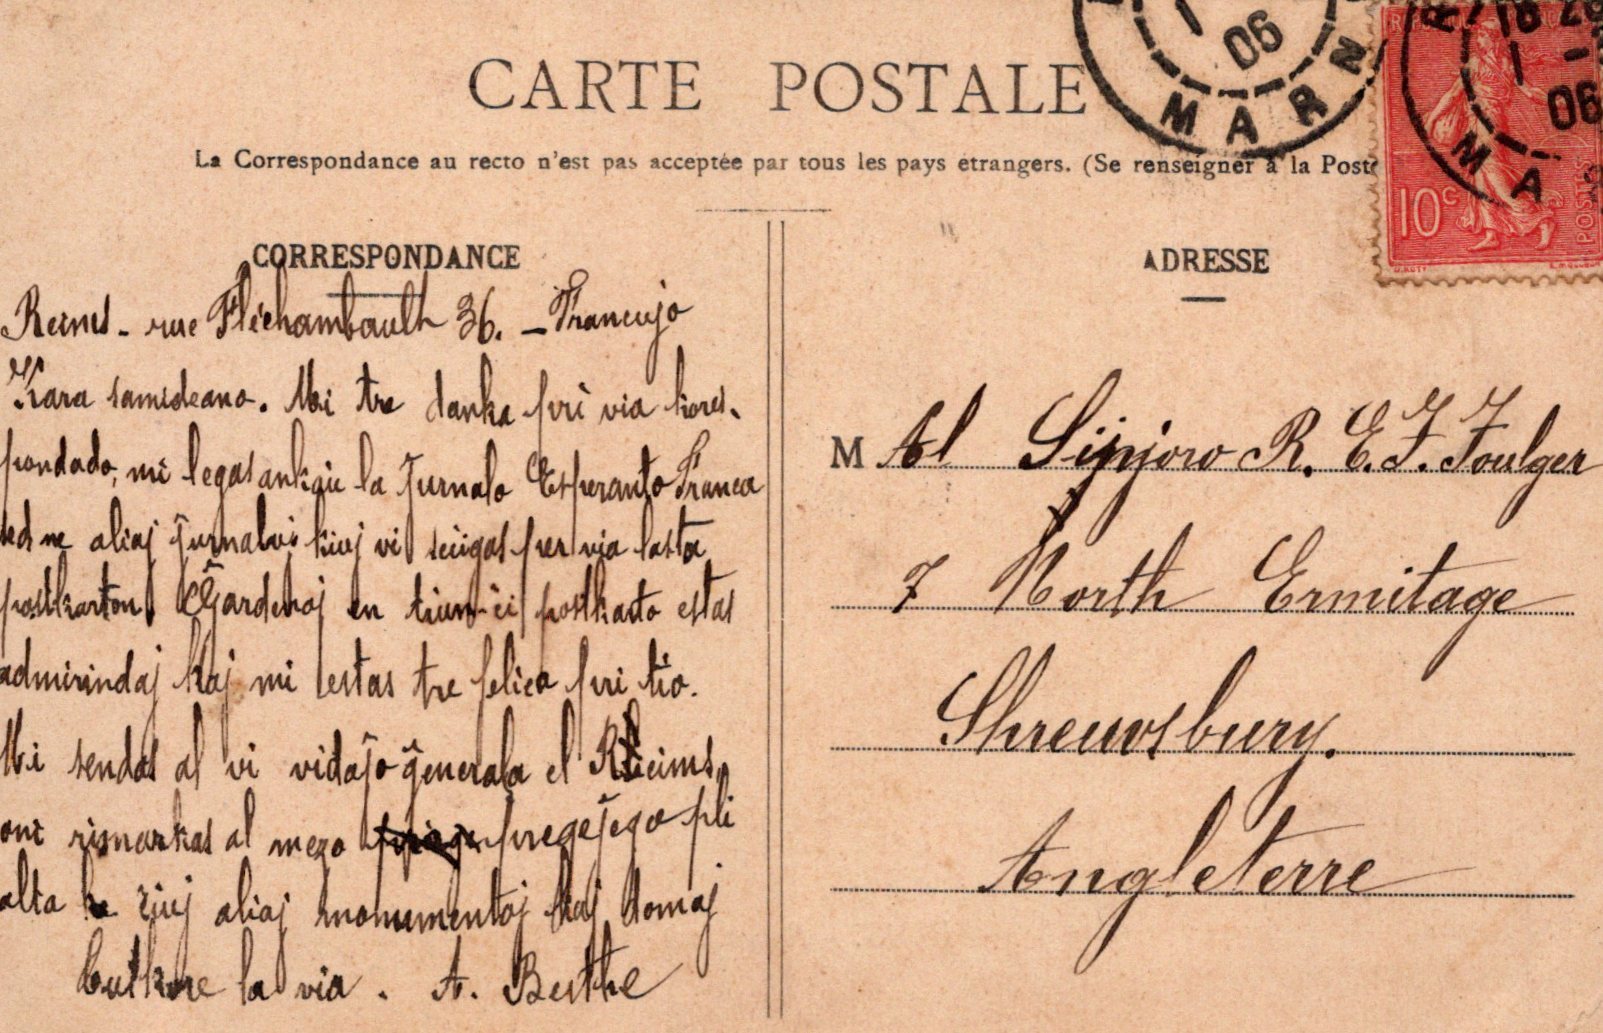 CARTE POSTALE
La Correspondance au recto n'est pas acceptée par tous les pays étrangers. (Se renseigner à la Poste
CORRESPONDANCE
Reims - rue Fléchambault 36. - Francujo
Kara samideano. Mi tre danka pri via kores-
pondado, mi legas ankaŭ la Jurnalo Esperanto Franca
sed ne aliaj ĵurnaloj kiuj vi sciigas per via lasta
postkarton. Ĝardenoj en tiun-ĉi postkarto estas
admirindaj kaj mi estas tre felica pri tio.
Mi sendas al vi vidaĵo ĝenerala el Rheims,
oni rismarkas al mezo preĝejego pli
alta ke ziuj aliaj monumentoj kaj domaj
Cutkore la via. A. Berthe
ADRESSE
M Al Sinjoro R. E. F. Foulger
7 North Ermitage
Shrewsbury.
Angleterre
06
MARN
10c
POSTES
18
1
06
MA